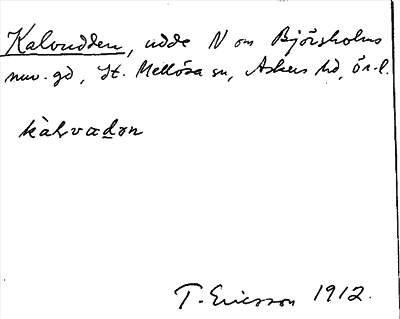 Kalvudden, udde N om Björsholms
nuv. gd, St. Mellösa sn, Askers hd, ör.l.
kàlvadən
T. Ericsson 1912.